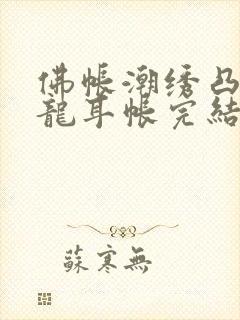 佛帳潮绣凸
龍耳帳完結
蘇寒無